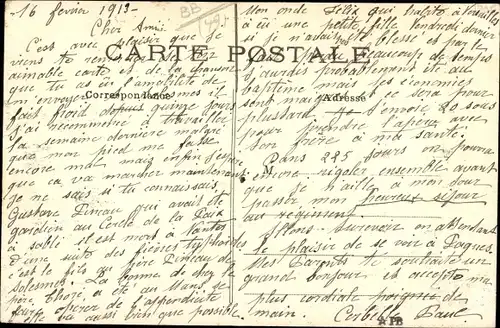 16 fevrier 1913 -
Cher Ami
C'est avec plaisir que je
viens te remercier de ton
aimable carte et de la
que tu as eu l'amabilité de
m'envoyer mes il
fait froid depuis quinze jours
j'ai recommencé à travailler
la semaine dernière malgré
que mon pied me fasse
encore mal mais enfin j'espère
que ça va marcher maintenant
Je ne sais si tu connaissais
Gustave Pineau qui avait été
gardien au Cercle de la Paix
à Sablé il est mort à Nantes
d'une suite des fièvres typhoïdes
c'est le fils du père Pineau de
Solesmes. La femme de chez le
père a été au Mans se
faire opérer de l'appendicite
elle va aussi bien que possible
CARTE POSTALE
Correspondance
Adresse
Mon oncle Félix qui habite à
a eu une petite fille Vendredi dernier
si je n'avais été blessé et par le
beaucoup de temps
j'aurais probablement été au
baptême mais les économies
sont mais ce sera pour
plus tard. Je t'envoie 20 sous
pour prendre l'apéro avec
ton frère à ma santé.
Dans 225 jours on pourra
encore rigoler ensemble avant
que je n'aille à mon tour
passer mon heureux séjour
au régiment.
Allons. Au revoir en attendant
le plaisir de se voir à Pâques
Mes Parents te souhaite un
grand bonjour et accepte ma
plus cordiale poignée de
main. Paul